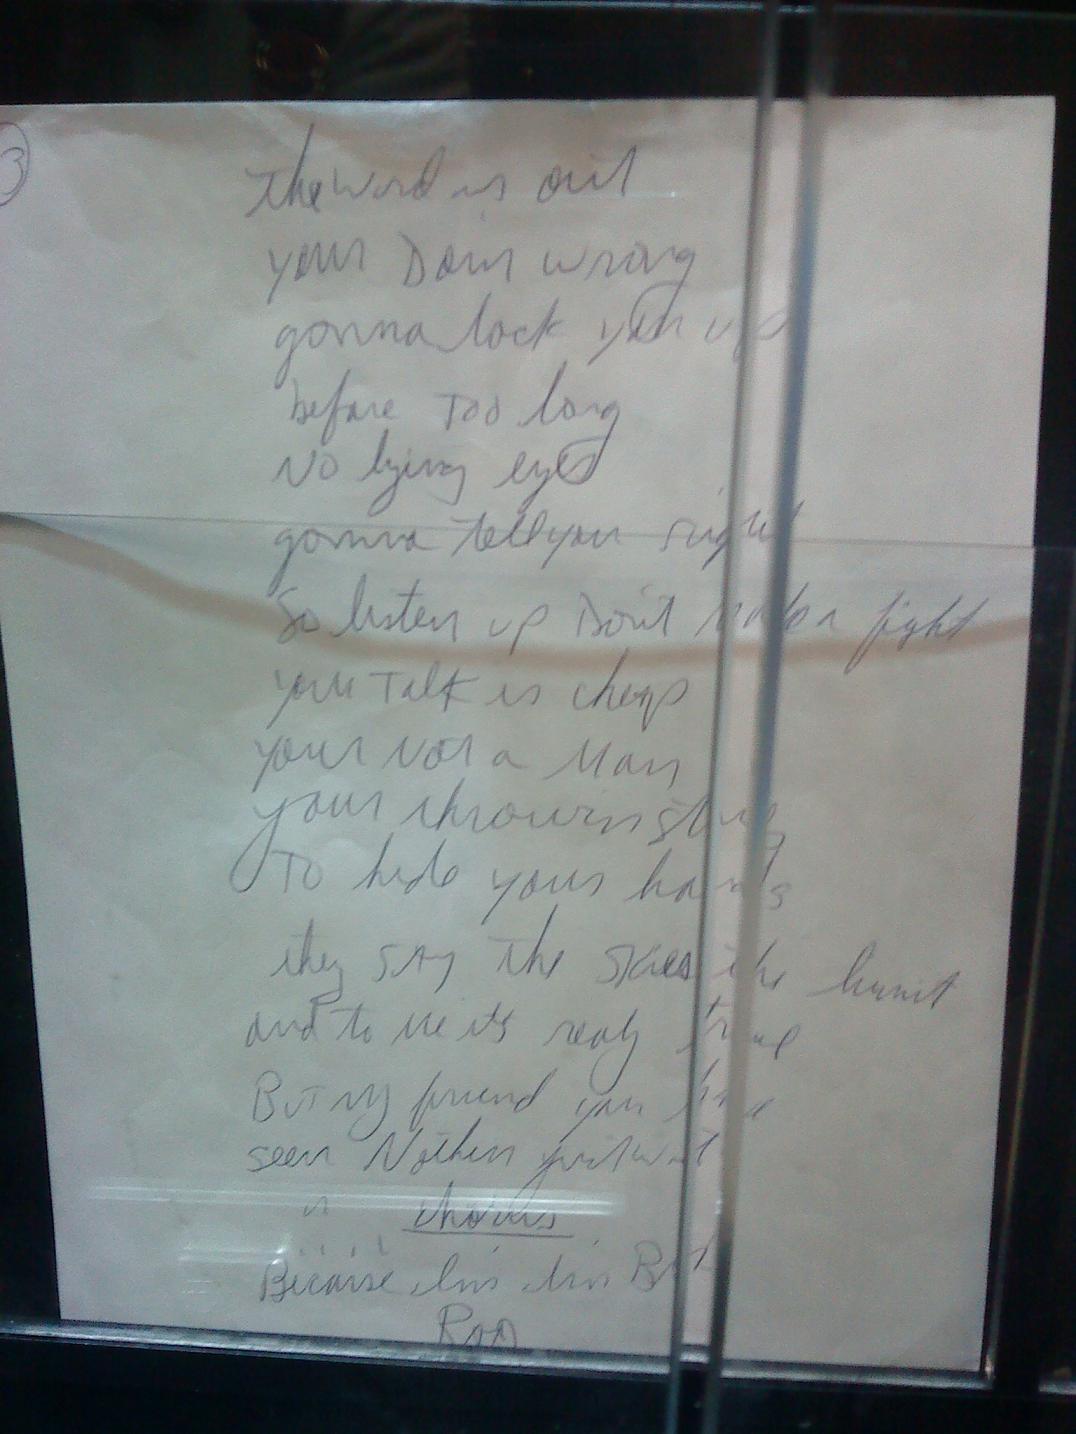 3
The word is out
your Doin wrong
gonna lock you up
before Too long
No lying eyes
gonna tell you right
So listen up Don't make a fight
your Talk is cheap
your Not a Man
your throwin stones
To hide your hands
they SAy The skies the limit
and to me its realy true
But my friend you have
seen Nothin just wait
chorus
Because I'm I'm Bad
Bad